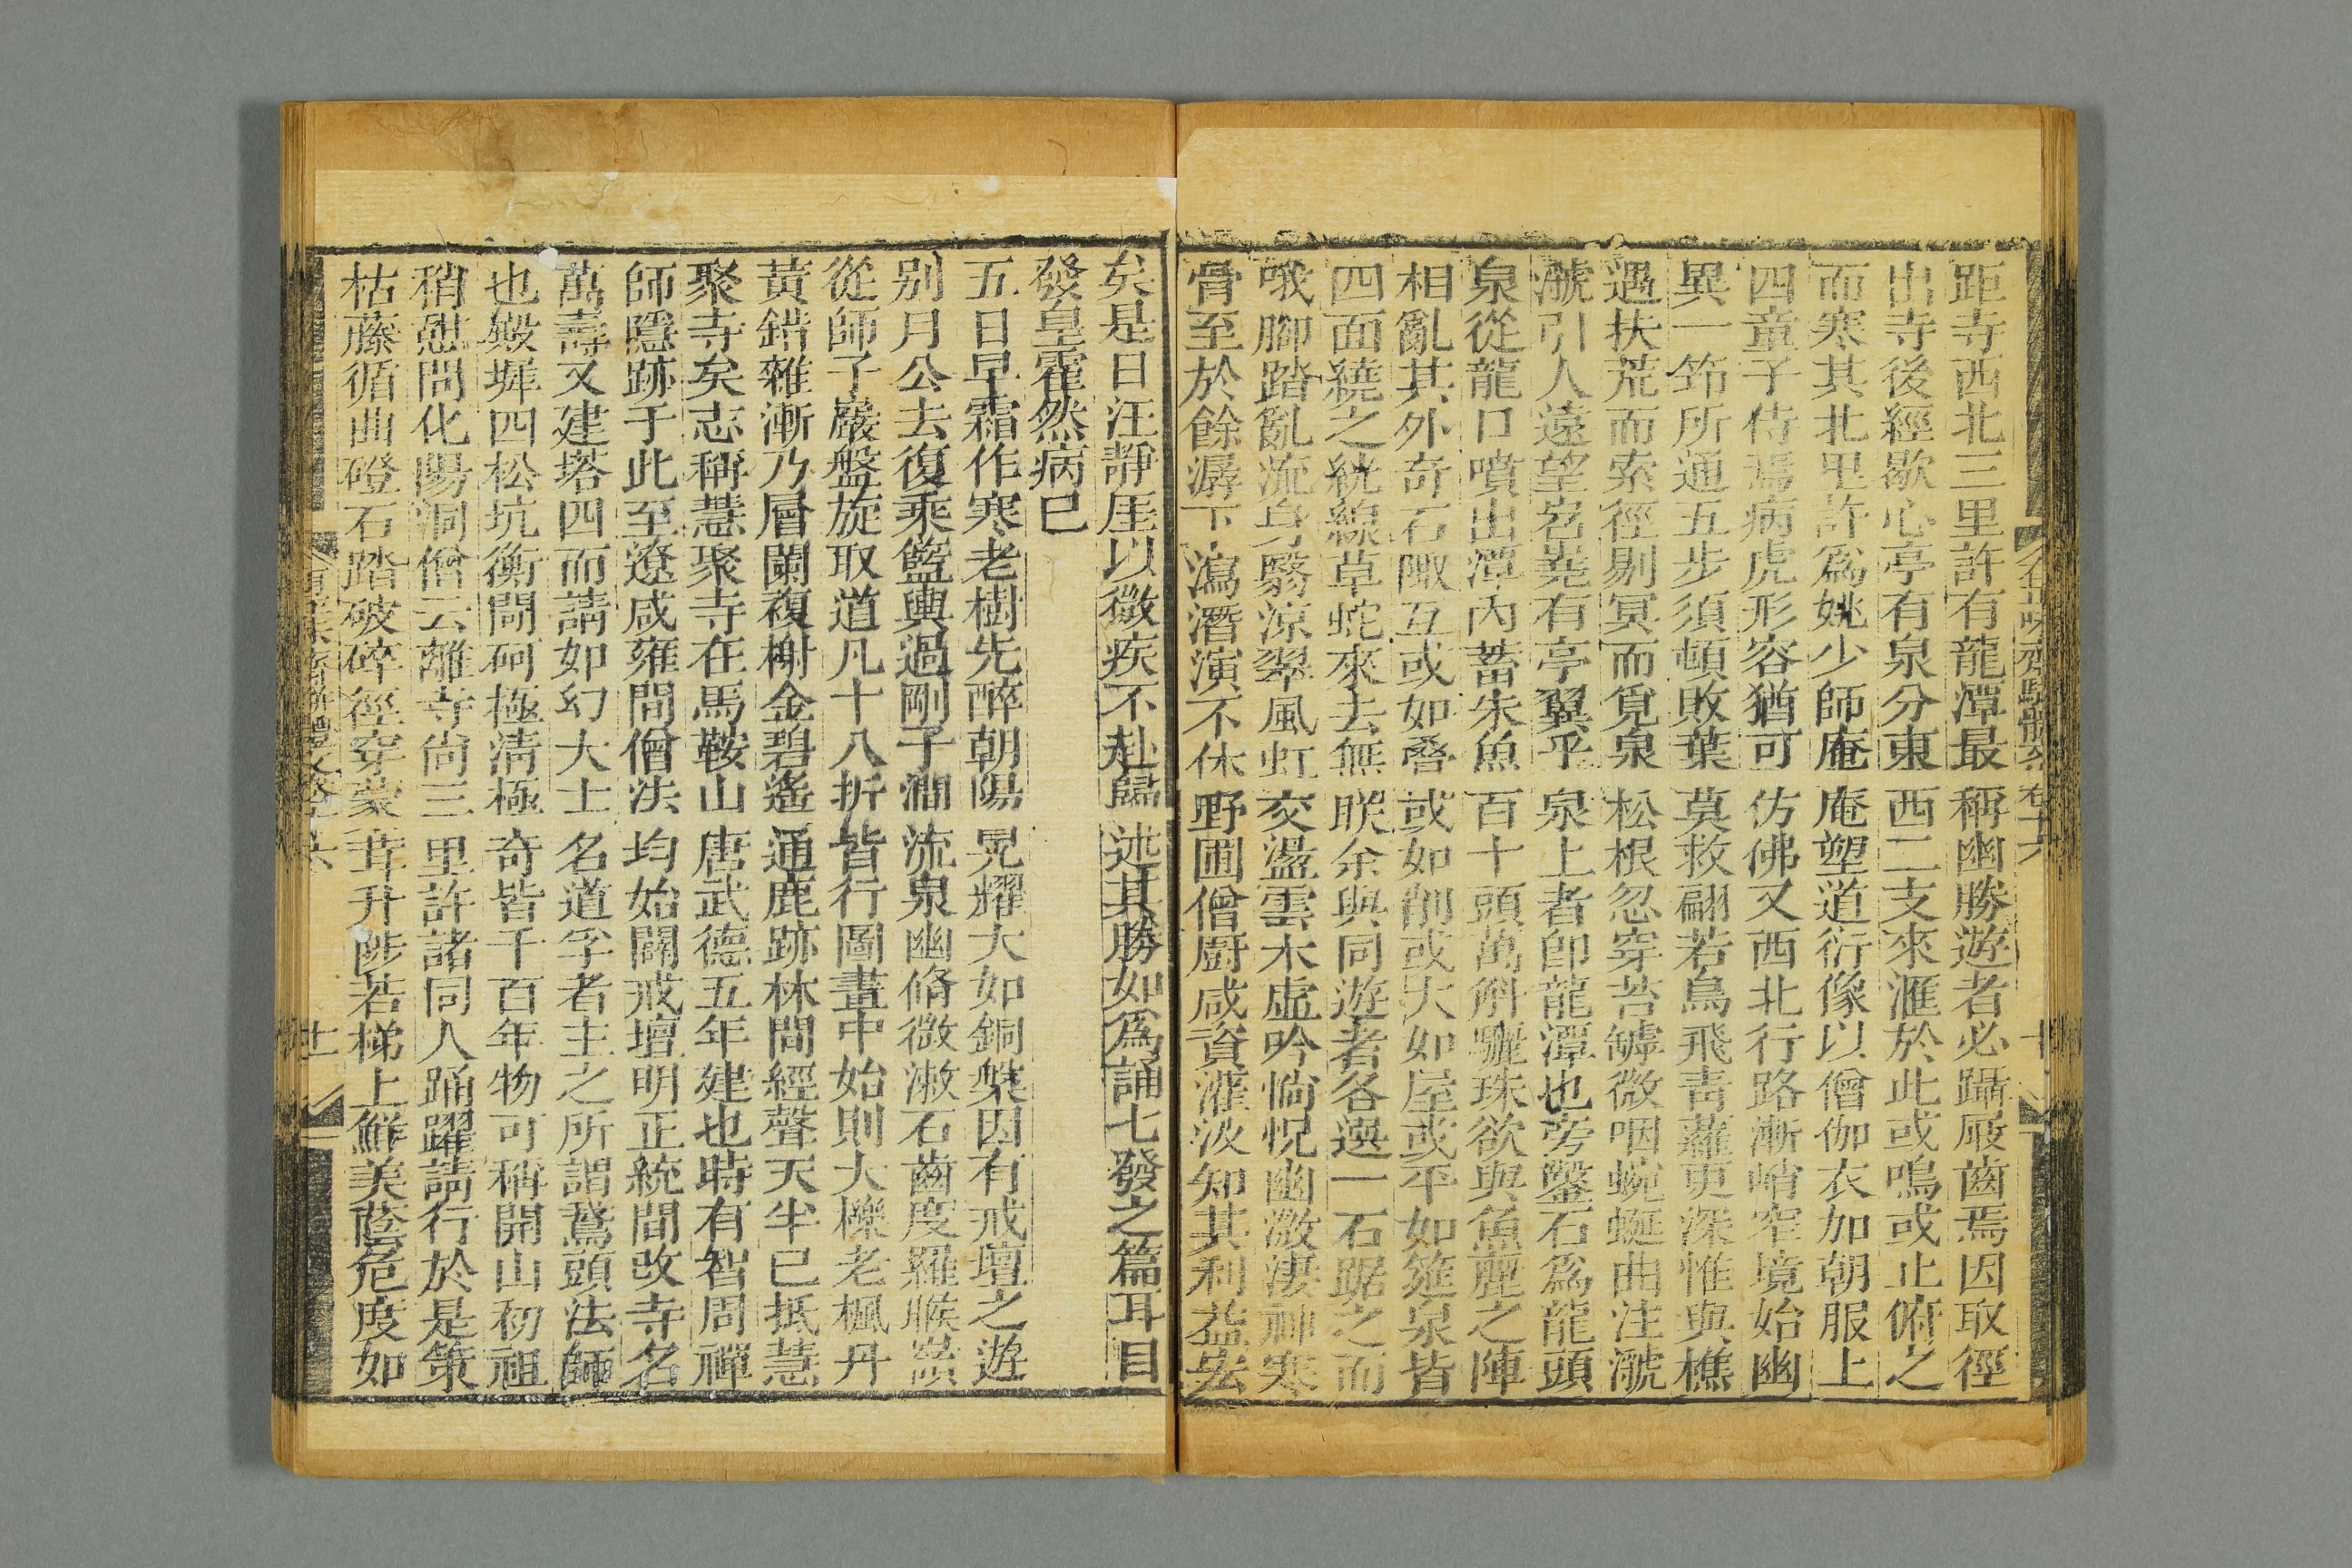 距寺西北三里許有龍潭最稱幽勝遊者必躡屐齒焉因取徑
出寺後經歇心亭有泉分東西二支來滙於此或鳴或止俯之
而寒其北里許爲姚少師庵庵塑道衍像以僧伽衣加朝服上
四童子侍焉病虎形容猶可仿佛又西北行路漸峭窄境始幽
異一笻所通五步須頓敗葉莫救翩若鳥飛靑蘿更深惟與樵
遇扶荒而索徑剔冥而覓泉松根忽穿苔罅微咽蜿蜒曲注㶁
㶁引人遠望岧嶤有亭翼乎泉上者卽龍潭也旁鑿石爲龍頭
泉從龍口噴出潭內蓄朱魚百十頭萬斛驪珠欲與魚麗之陣
相亂其外奇石陬互或如疊或如削或大如屋或平如筵泉皆
四面繞之絖線草蛇來去無朕余與同遊者各選一石踞之而
哦腳踏亂流身翳涼翠風虹交盪雲木虛吟惝怳幽漵淒神寒
骨至於餘潺下瀉潛演不休野圃僧廚咸資灌汲知其利益宏
矣是日汪靜厓以微疾不赴歸述其勝如爲誦七發之篇耳目
發皇霍然病已
五日早霜作寒老樹先醉朝陽晃耀大如銅槃因有戒壇之遊
别月公去復乘籃輿過剛子澗流泉幽脩微漱石齒度羅睺嶺
從師子巖盤旋取道凡十八折皆行圖畫中始則大櫟老楓丹
黃錯雜漸乃層闌複榭金碧遙通鹿跡林間經聲天半已抵慧
聚寺矣志稱慧聚寺在馬鞍山唐武德五年建也時有智周禪
師隱跡于此至遼咸雍間僧法均始闢戒壇明正統間改寺名
萬壽又建塔四而請如幻大士名道孚者主之所謂鵞頭法師
也殿墀四松坑衡閜砢極淸極奇皆千百年物可稱開山初祖
稍憩問化陽洞僧云離寺尙三里許諸同人踊躍請行於是策
枯藤循曲磴石踏破碎徑穿蒙茸升陟若梯上鮮美蔭危度如